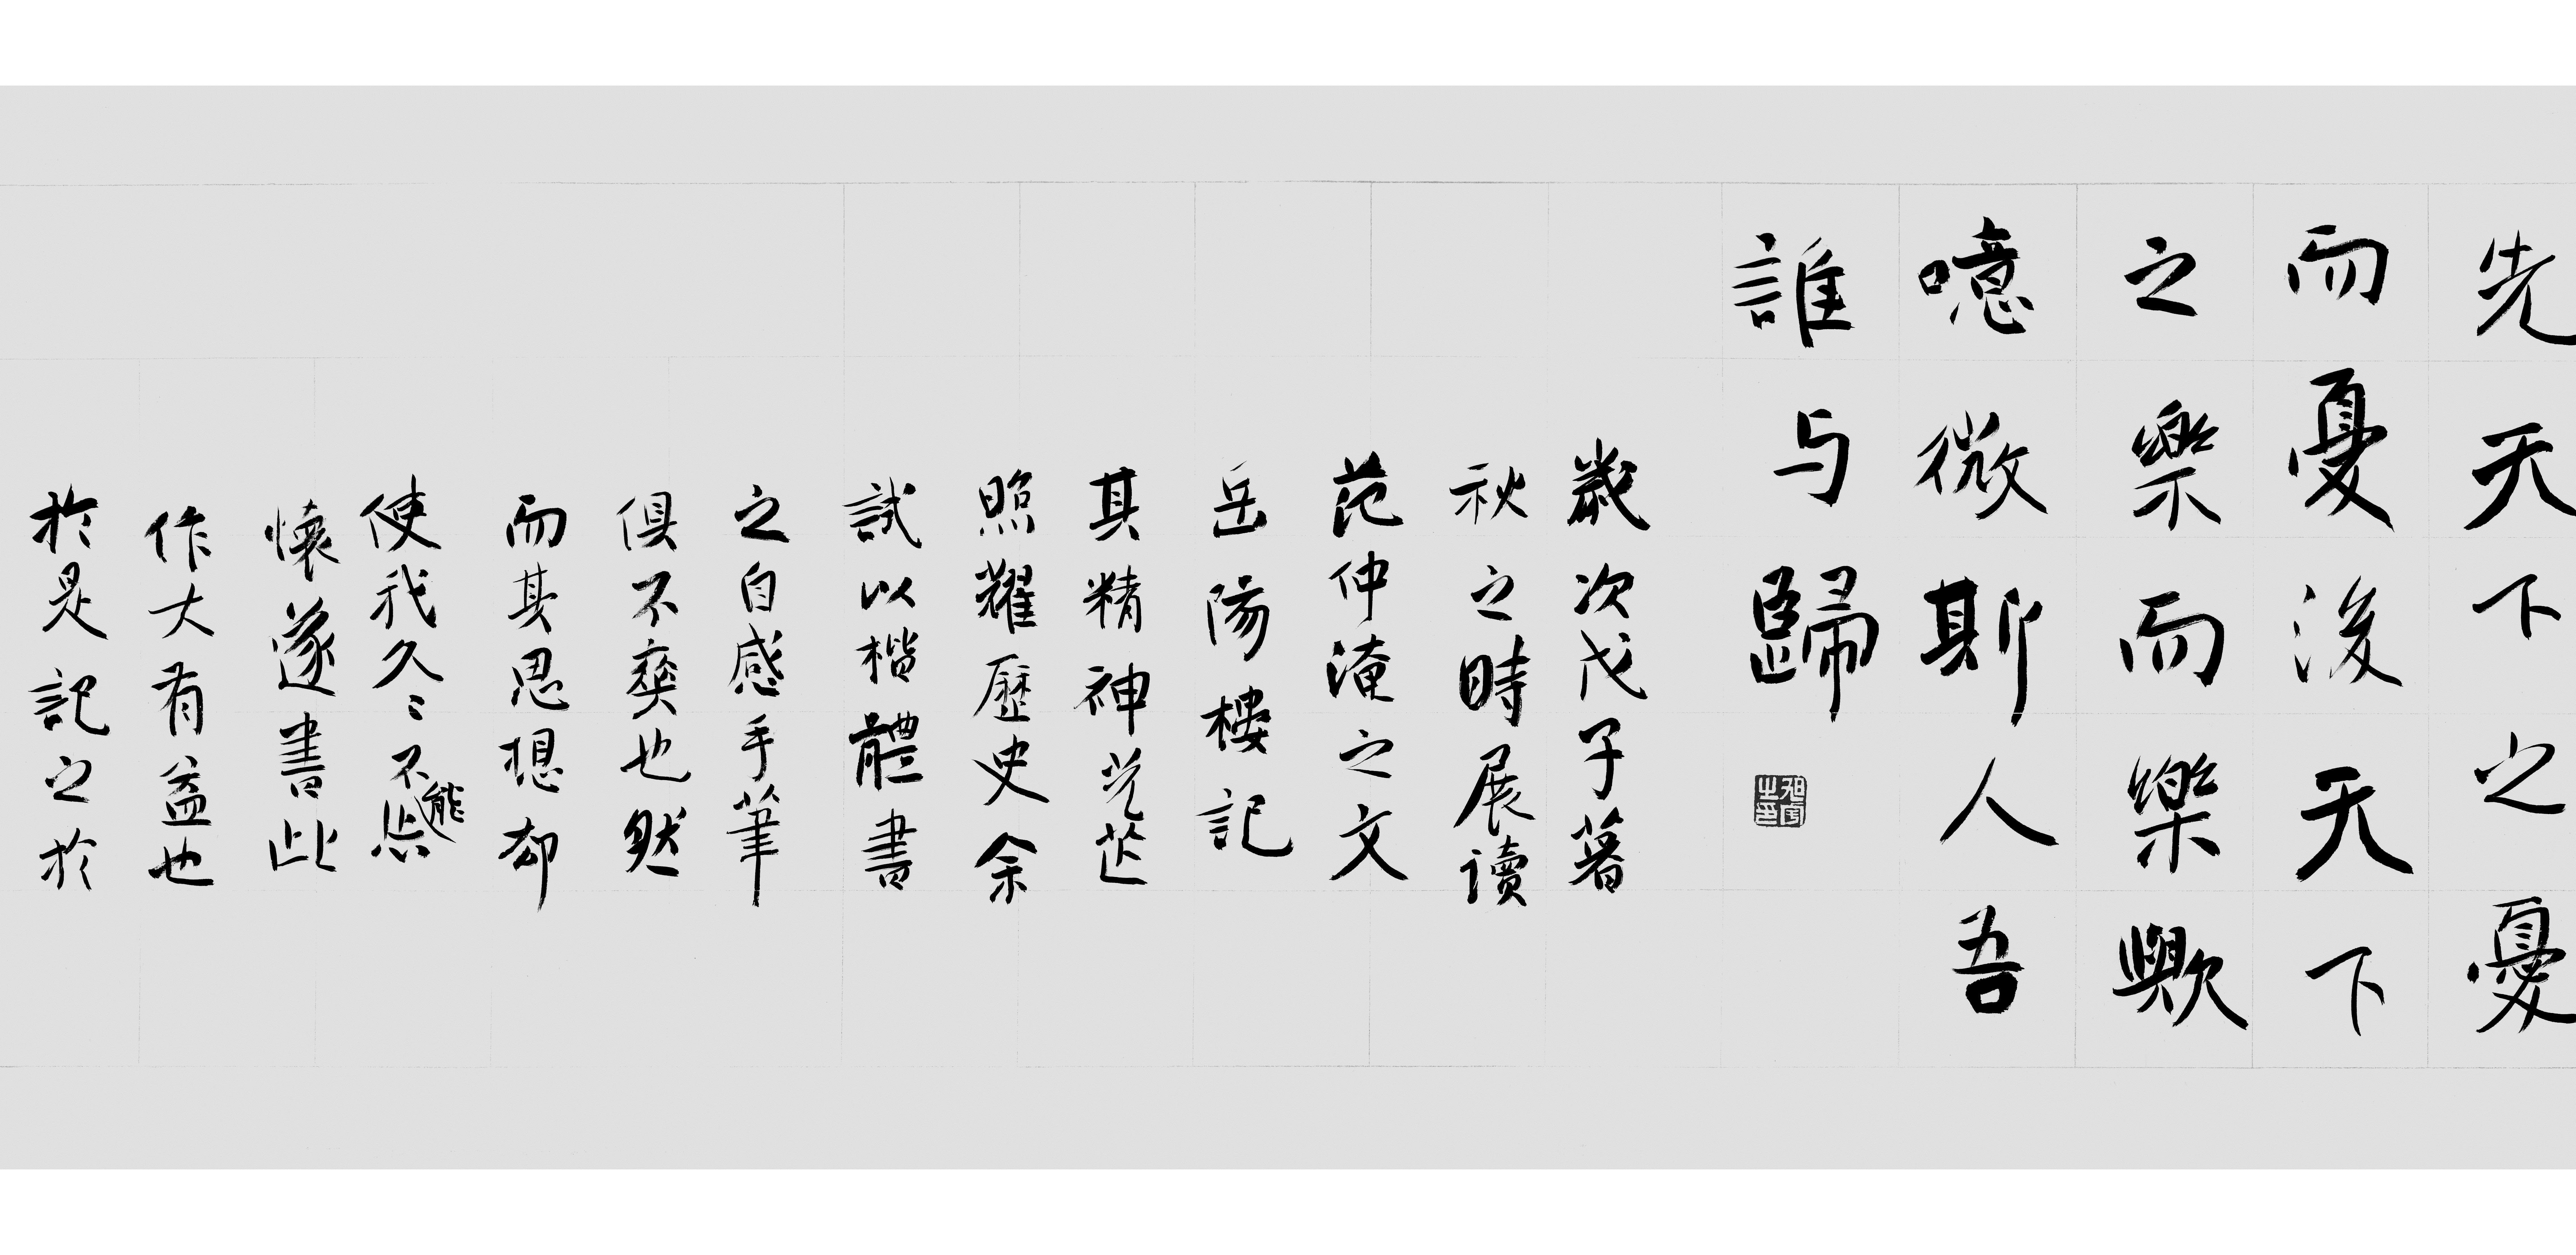 先天下之憂
而憂後天下
之樂而樂歟
噫微斯人吾
誰与歸
旭宇之印
歲次戊子暮
秋之時展讀
范仲淹之文
岳陽樓記
其精神光芒
照耀歷史余
試以楷體書
之自感手筆
俱不爽也然
而其思想却
使我久々不能忘
懷遂書此
作大有益也
於是記之於